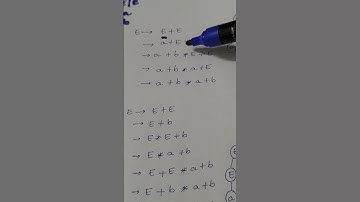 E → E + E
→ a + E
→ a + b * E + E
→ a + b * a + E
→ a + b * a + b
E → E + E
→ E + b
→ E * E + b
→ E * a + b
→ E + E * a + b
→ E + b * a + b